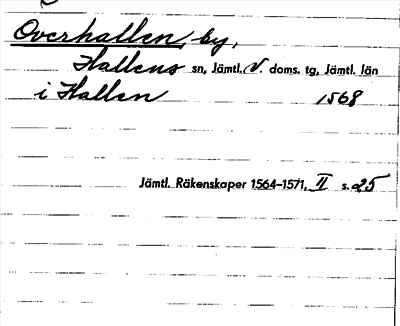 Överhallen, by,
Hallens sn, Jämtl. V. doms. tg, Jämtl. län
i Hallen 1568
Jämtl. Räkenskaper 1564–1571, II s. 25